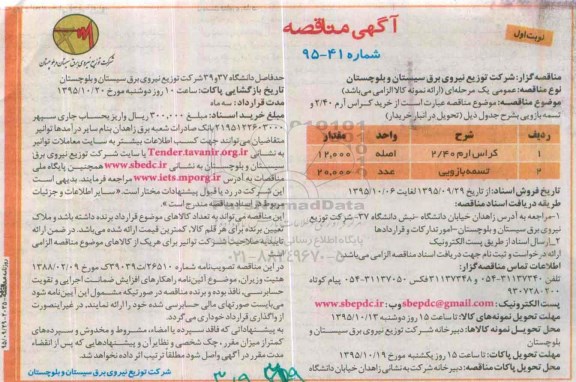 آگهی مناقصه
شماره ۴۱-۹۵
نوبت اول
شرکت توزیع نیروی برق سیستان و بلوچستان
مناقصه گزار: شرکت توزیع نیروی برق سیستان و بلوچستان
نوع مناقصه: عمومی یک مرحله‌ای (ارائه نمونه کالا الزامی می‌باشد)
موضوع مناقصه: موضوع مناقصه عبارت است از خرید کراس آرم ۲/۴۰ و
تسمه بازویی بشرح جدول ذیل (تحویل در انبار خریدار)
ردیف شرح واحد مقدار
۱ کراس آرم ۲/۴۰ اصله ۱۲,۰۰۰
۲ تسمه بازویی عدد ۲۰,۰۰۰
تاریخ فروش اسناد: از تاریخ ۱۳۹۵/۰۹/۲۹ لغایت ۱۳۹۵/۱۰/۰۶
طریقه دریافت اسناد مناقصه:
۱-مراجعه به آدرس زاهدان خیابان دانشگاه -نبش دانشگاه ۳۷- شرکت توزیع
نیروی برق سیستان و بلوچستان-امور تدارکات و قراردادها
۲_ارسال اسناد از طریق پست الکترونیک
ارائه درخواست و ثبت نام جهت دریافت اسناد مناقصه الزامی می‌باشد.
اطلاعات تماس مناقصه گزار:
تلفن ۳۱۱۳۷۲۴۰-۰۵۴ و ۳۱۱۳۷۳۴۸ فکس ۳۱۱۳۷۰۵۰-۰۵۴ پیام کوتاه
۹۳۰۷۲۸۰۲۰۰
پست الکترونیک: sbepdc@gmail.com وب: www.sbepdc.ir
مهلت تحویل نمونه های کالا: تا ساعت ۱۵ روز دوشنبه ۱۳۹۵/۱۰/۱۳
محل تحویل نمونه کالاها: دبیرخانه شرکت توزیع نیروی برق سیستان و
بلوچستان
مهلت تحویل پاکات: تا ساعت ۱۵ روز یکشنبه مورخ ۱۳۹۵/۱۰/۱۹
محل تحویل پاکات مناقصه: دبیرخانه شرکت به نشانی زاهدان خیابان دانشگاه
حدفاصل دانشگاه ۳۷ و ۳۹ شرکت توزیع نیروی برق سیستان و بلوچستان
تاریخ بازگشایی پاکات: ساعت ۱۰ روز دوشنبه مورخ ۱۳۹۵/۱۰/۲۰
مدت قرارداد: سه ماه
مبلغ خرید اسناد: مبلغ ۳۰۰,۰۰۰ ریال واریز بحساب جاری سپهر
۲۱۹۵۱۲۲۶۰۳۰۰۰ بانک صادرات شعبه برق زاهدان بنام سایر درآمدها توانیر
متقاضیان می‌توانند جهت کسب اطلاعات بیشتر به سایت معاملات توانیر
به نشانی Tender.tavanir.org.ir یا سایت شرکت توزیع نیروی برق
سیستان و بلوچستان به نشانی www.sbepdc.ir همچنین پایگاه ملی
مناقصات به آدرس www.iets.mporg.ir مراجعه فرمایند. بدیهی است
این شرکت در رد یا قبول پیشنهادات مختار است «سایر اطلاعات و جزئیات
مربوط در اسناد مناقصه مندرج است»
این مناقصه می‌تواند به تعداد کالاهای موضوع قرارداد برنده داشته باشد و ملاک
تعیین برنده برای هر قلم کالا، کمترین قیمت ارائه شده می‌باشد. در ضمن ارائه
تاییدیه صلاحیت شرکت توانیر برای هریک از کالاهای موضوع مناقصه الزامی
می‌باشد.
در این مناقصه تصویب‌نامه شماره ۲۶۵۱۰/ت۳۹۰۳۹ک مورخ ۱۳۸۸/۰۲/۰۹
هئیت وزیران، موضوع آئین‌نامه راهکارهای افزایش ضمانت اجرایی و تقویت
حسابرسی، نافذ بوده و برنده مناقصه در صورتیکه مشمول این آیین‌نامه شود
می‌بایست صورتهای مالی حسابرسی شده خود را ارائه نمایند. در غیر اینصورت
از واگذاری قرارداد خودداری می‌گردد.
به پیشنهاداتی که فاقد سپرده یا امضاء، مشروط و مخدوش و سپرده‌های
کمتر از میزان مقرر، چک شخصی و نظایر آن و پیشنهادهایی که پس از انقضاء
مدت مقرر در آگهی واصل شود مطلقا ترتیب اثر داده نخواهد شد.
شرکت توزیع نیروی برق سیستان و بلوچستان